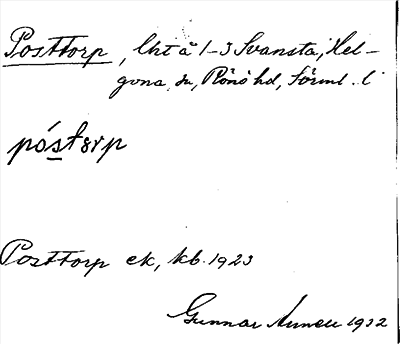 Posttorp, lht å 1-3 Svansta, Hel-
gona sn, Rönö hd, Sörml. l
póstǫrp
Posttorp ek, kb. 1923
Gunnar 1932